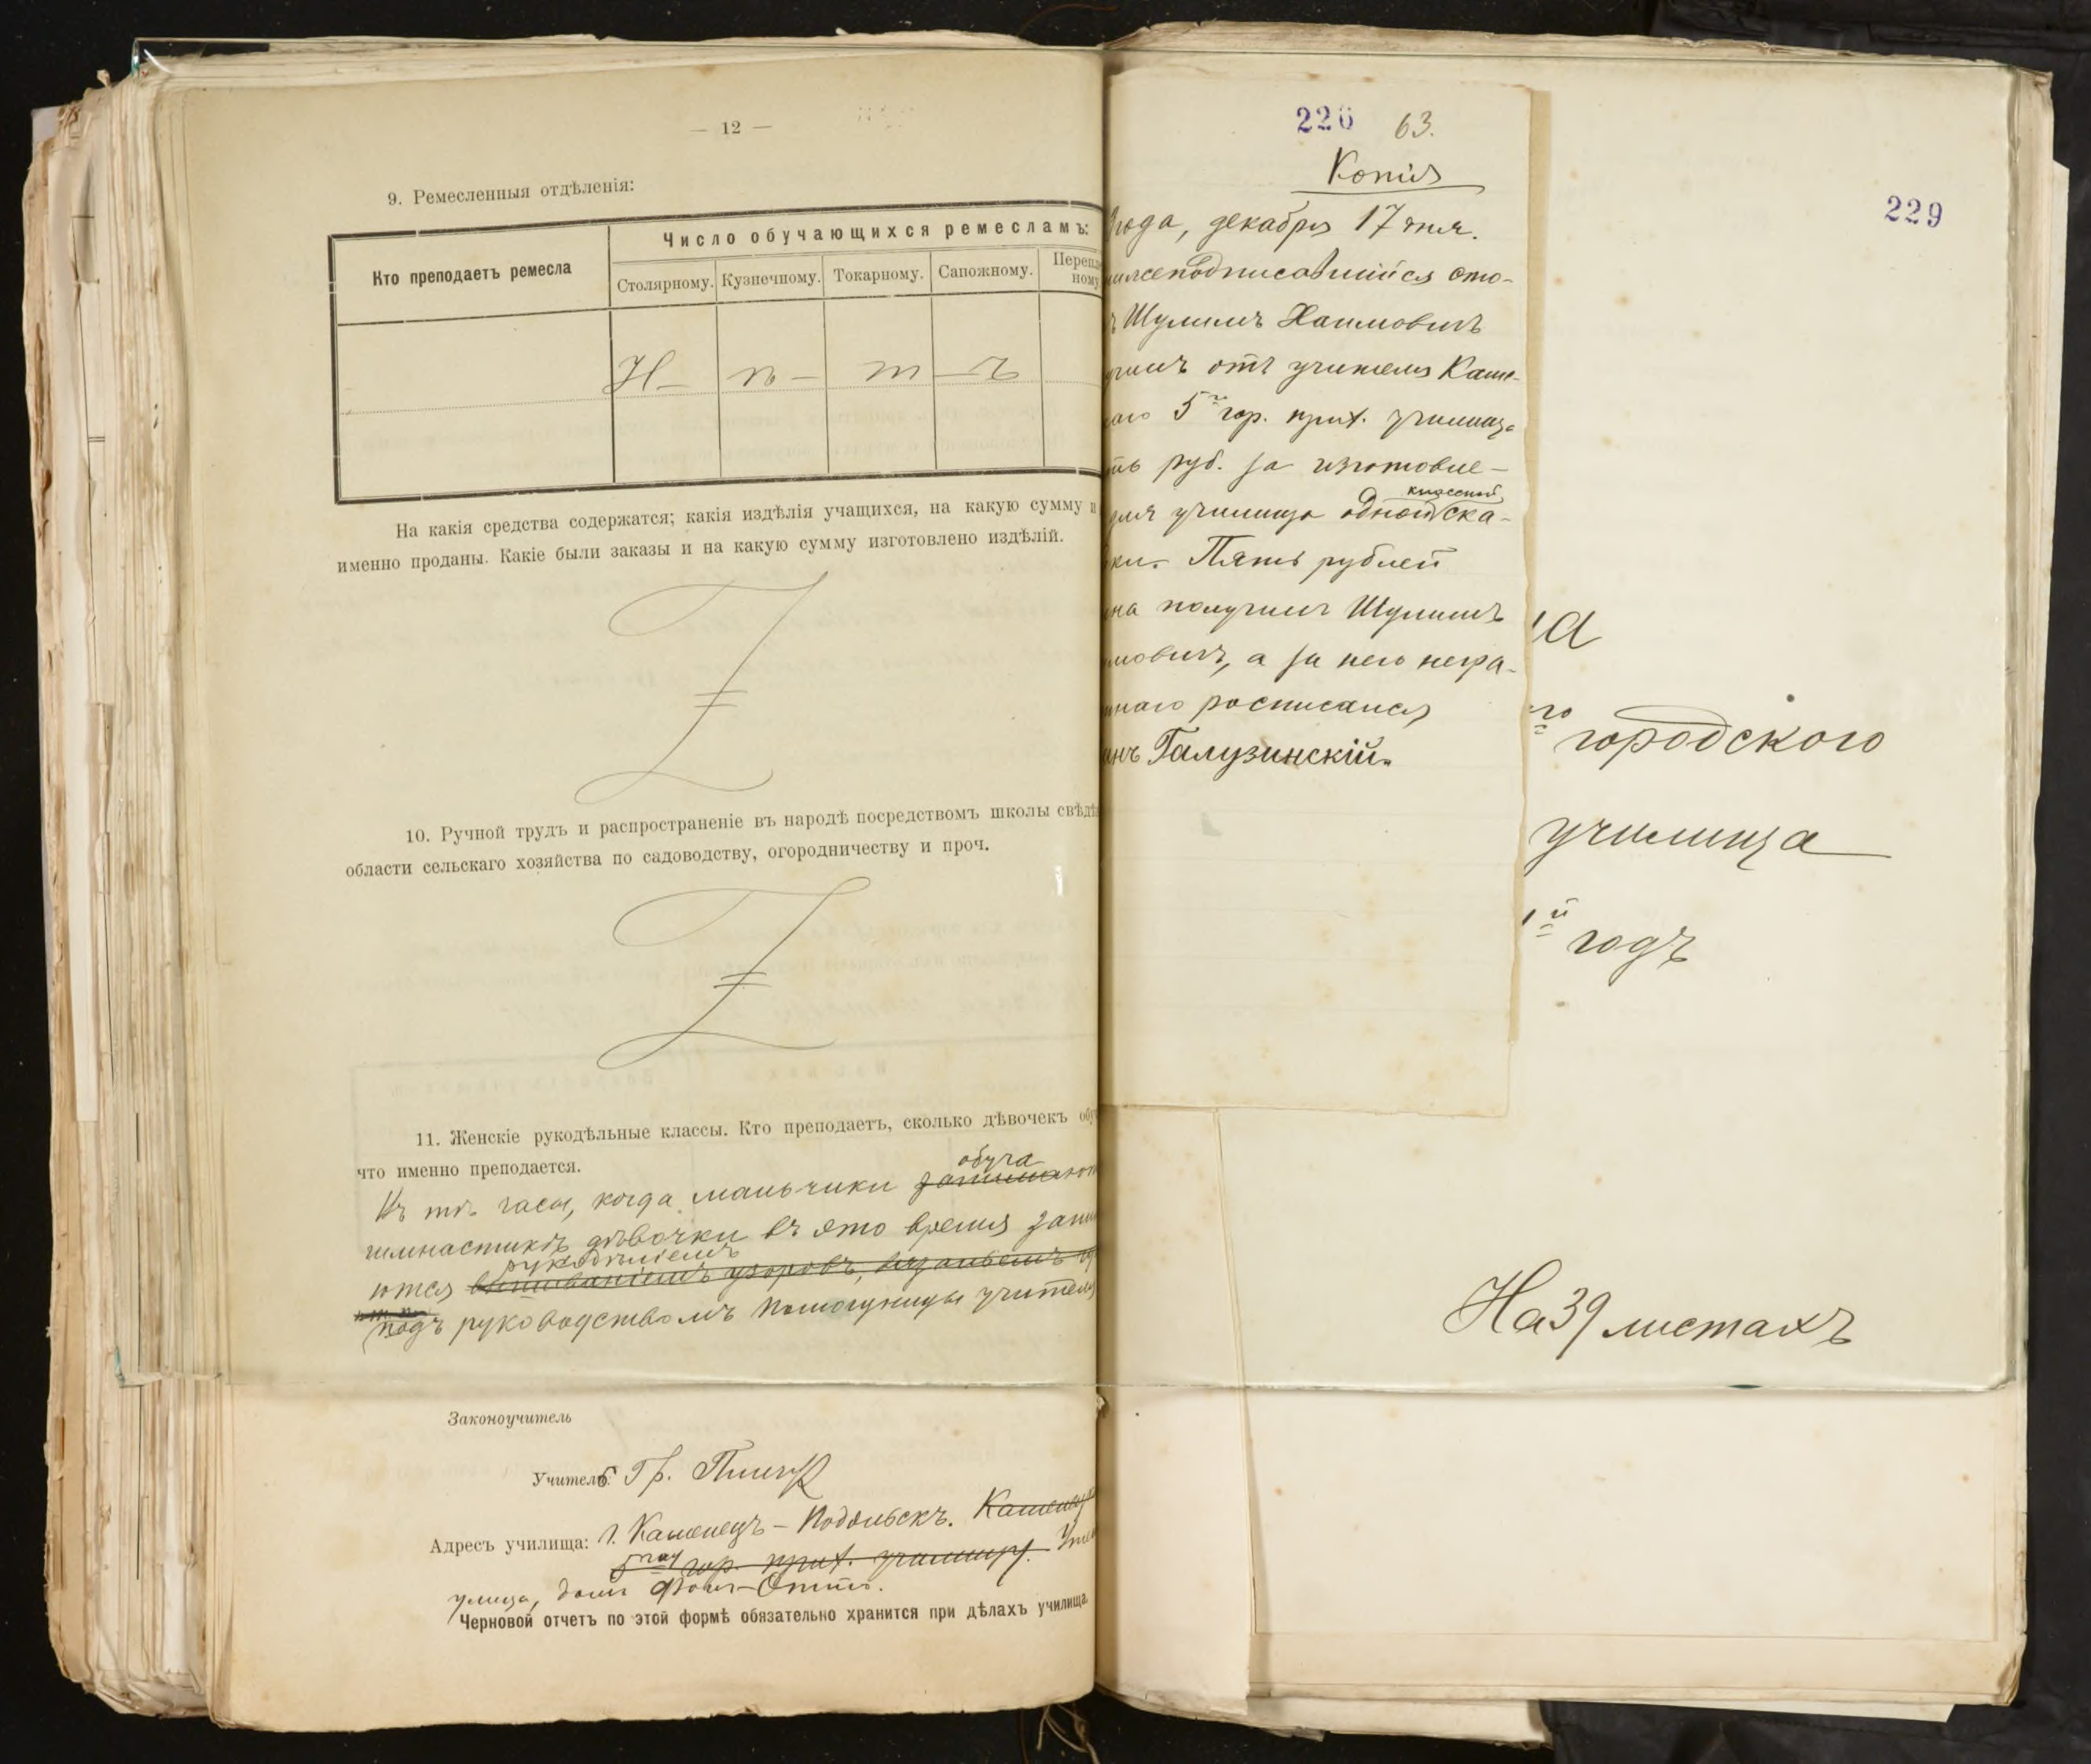 — 12 —
9. Ремесленныя отдѣленія:
Кто преподаетъ ремесла
Число обучающихся ремесламъ:
Столярному. Кузнечному. Токарному. Сапожному. Перепл
ному
Н — ѣ — т — ъ
На какія средства содержатся; какія издѣлія учащихся, на какую сумму и
именно проданы. Какіе были заказы и на какую сумму изготовлено издѣлій.
10. Ручной трудъ и распространеніе въ народѣ посредствомъ школы свѣдѣ
области сельскаго хозяйства по садоводству, огородничеству и проч.
11. Женскіе рукодѣльные классы. Кто преподаетъ, сколько дѣвочекъ обу
что именно преподается.
обуча
Въ тѣ часы, когда мальчики занимают
гимнастикѣ, дѣвочки въ это время зани
рукодѣліемъ
ются вышиваніемъ узоровъ, вязаньемъ
подъ руководствомъ помощницы учителя
Законоучитель
Учитель: Гр.
Адресъ училища: г. Каменецъ-Подольскъ. Каменец
5му гор. прих. училищу.
улица, домъ Фонъ-Отто.
Черновой отчетъ по этой формѣ обязательно хранится при дѣлахъ училища
226 63.
Копія
года, декабря 17 дня.
нижеподписавшійся сто-
ъ Шулимъ Хаимовичъ
училъ отъ учителя Каме-
аго 5го гор. прих. училища
ть руб. за изготовле-
классной
для училища одной ска-
ки. Пять рублей
на получилъ Шулимъ
мовичъ, а за него негра-
тнаго росписался
анъ Галузинскій.
229
а
го городского
училища
й годъ
На 39 листахъ